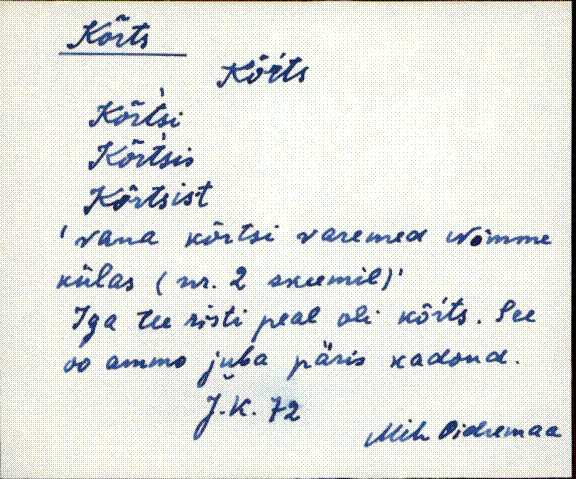 Kõrts
Kõŕts
Kõrtsi
Kõrtsis
Kõrtsist
'vana kõrtsi varemed Nõmme
külas (nr. 2 skeemil)'
Iga tee risti peal oli kõŕts. See
oo ammo juba päris kadond.
J.K. 72